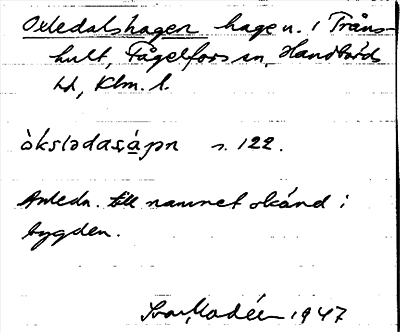 Oxledalshagen hage n. i Tråns-
hult, Fågelfors sn, Handbörds
hd, Klm. l.
òkslədas,àpn s. 122.
Anledn. till namnet okänd i
bygden.
Ivar Modéer 1947